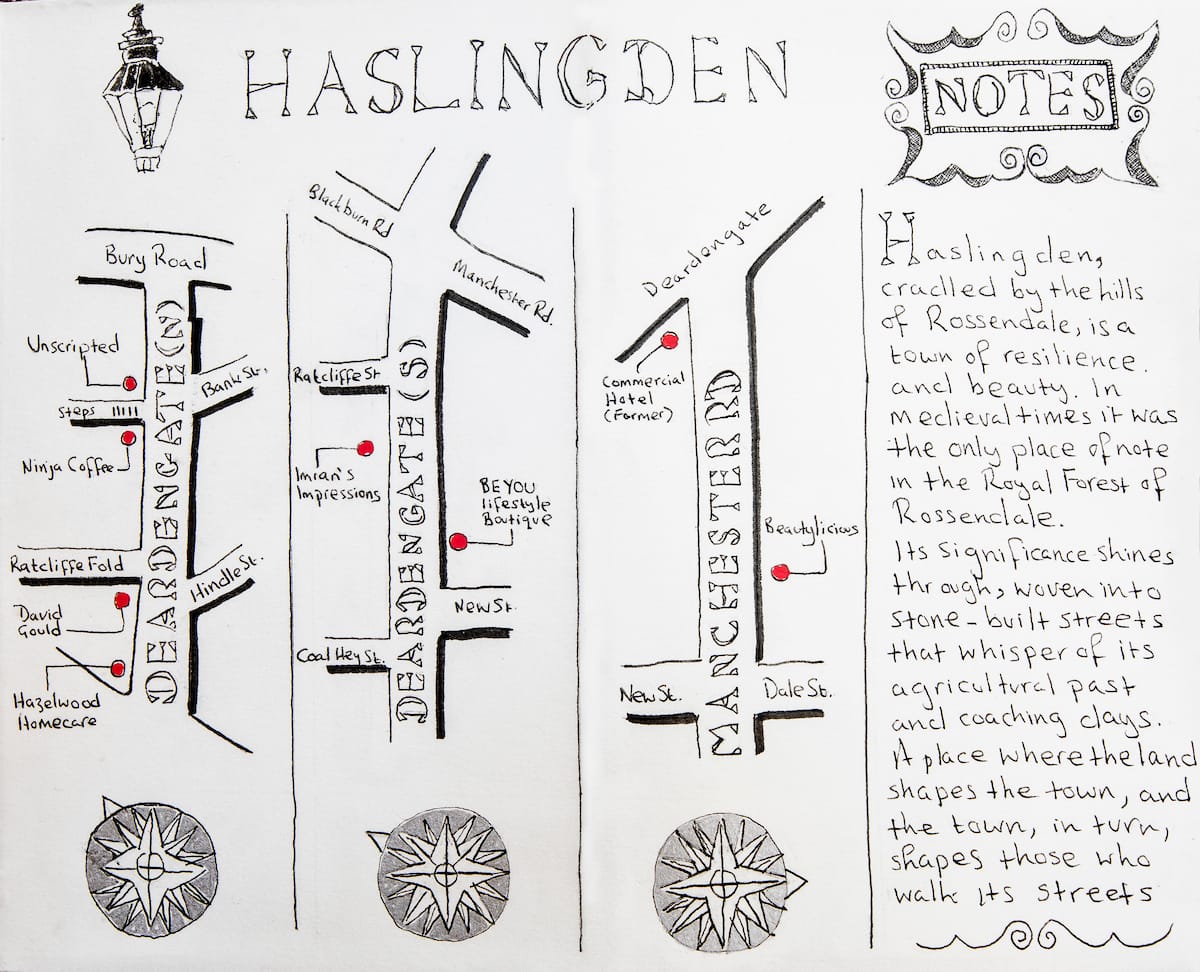 HASLINGDEN
NOTES
Bury Road
Unscripted
Bank St.
Steps
Ninja Coffee
DEARDENGATE (N)
Ratcliffe Fold
Hindle St.
David
Gould
Hazelwood
Homecare
Blackburn Rd
Manchester Rd.
Ratcliffe St
Imran's
Impressions
DEARDENGATE (S)
BE YOU
lifestyle
Boutique
New St.
Coal Hey St.
Deardengate
Commercial
Hotel
(Former)
MANCHESTER RD
Beautylicious
New St.
Dale St.
Haslingden,
cradled by the hills
of Rossendale, is a
town of resilience
and beauty. In
medieval times it was
the only place of note
in the Royal Forest of
Rossendale.
Its significance shines
through, woven into
stone-built streets
that whisper of its
agricultural past
and coaching days.
A place where the land
shapes the town, and
the town, in turn,
shapes those who
walk its streets